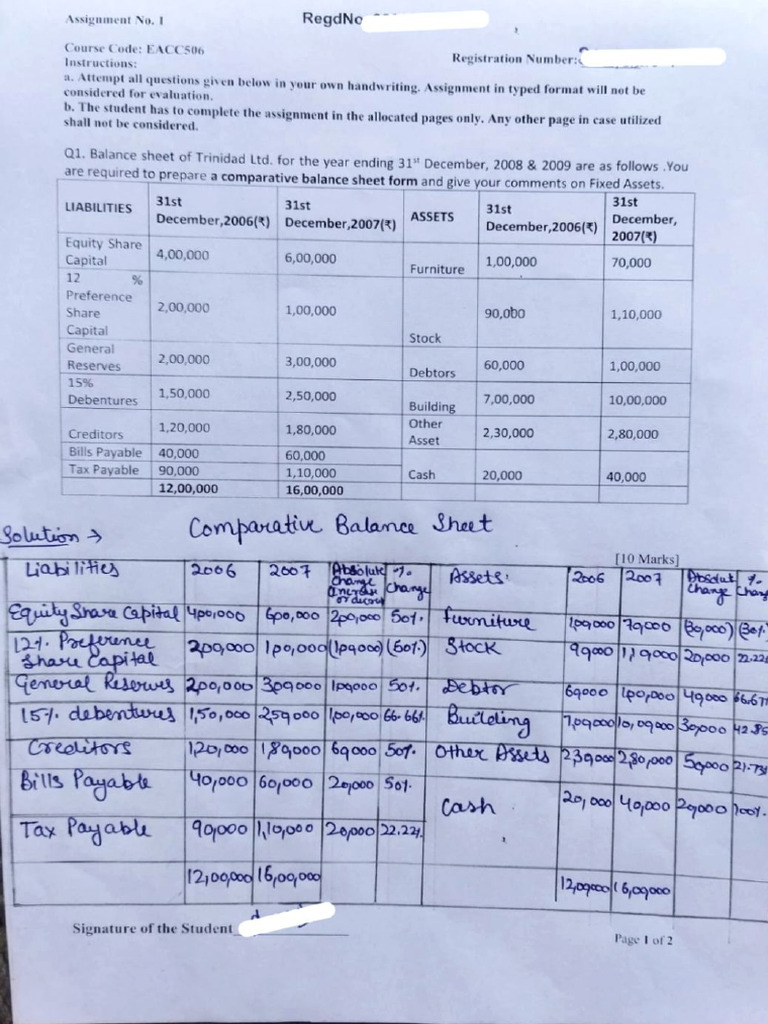 Assignment No. 1 RegdNo
Course Code: EACC506
Registration Number:
Instructions:
a. Attempt all questions given below in your own handwriting. Assignment in typed format will not be
considered for evaluation.
b. The student has to complete the assignment in the allocated pages only. Any other page in case utilized
shall not be considered.
Q1. Balance sheet of Trinidad Ltd. for the year ending 31st December, 2008 & 2009 are as follows .You
are required to prepare a comparative balance sheet form and give your comments on Fixed Assets.
LIABILITIES 31st December,2006(₹) 31st December,2007(₹) ASSETS 31st December,2006(₹) 31st December, 2007(₹)
Equity Share Capital 4,00,000 6,00,000 Furniture 1,00,000 70,000
12 % Preference Share Capital 2,00,000 1,00,000 Stock 90,000 1,10,000
General Reserves 2,00,000 3,00,000 Debtors 60,000 1,00,000
15% Debentures 1,50,000 2,50,000 Building 7,00,000 10,00,000
Creditors 1,20,000 1,80,000 Other Asset 2,30,000 2,80,000
Bills Payable 40,000 60,000
Tax Payable 90,000 1,10,000 Cash 20,000 40,000
12,00,000 16,00,000
Solution → Comparative Balance Sheet
[10 Marks]
Liabilities 2006 2007 Absolute Change % Change Assets 2006 2007 Absolut Change % Chang
Equity Share Capital 400,000 600,000 200,000 50% furniture 100000 70000 (30,000) (30%)
12% Preference Share Capital 200,000 100,000 (100000) (50%) Stock 90000 110000 20,000 22.22%
General Reserves 200,000 300000 100000 50% Debtor 60000 100,000 40000 66.67%
15% debentures 1,50,000 250000 100,000 66.66% Building 7,00000 10,00000 30,000 42.85
Creditors 120,000 180000 60000 50% Other Assets 230000 2,80,000 50000 21.73%
Bills Payable 40,000 60,000 20,000 50%
Cash 20,000 40,000 20000 100%
Tax Payable 90,000 1,10,000 20,000 22.22%
12,00,000 16,00,000 12,00000 16,00000
Signature of the Student
Page 1 of 2